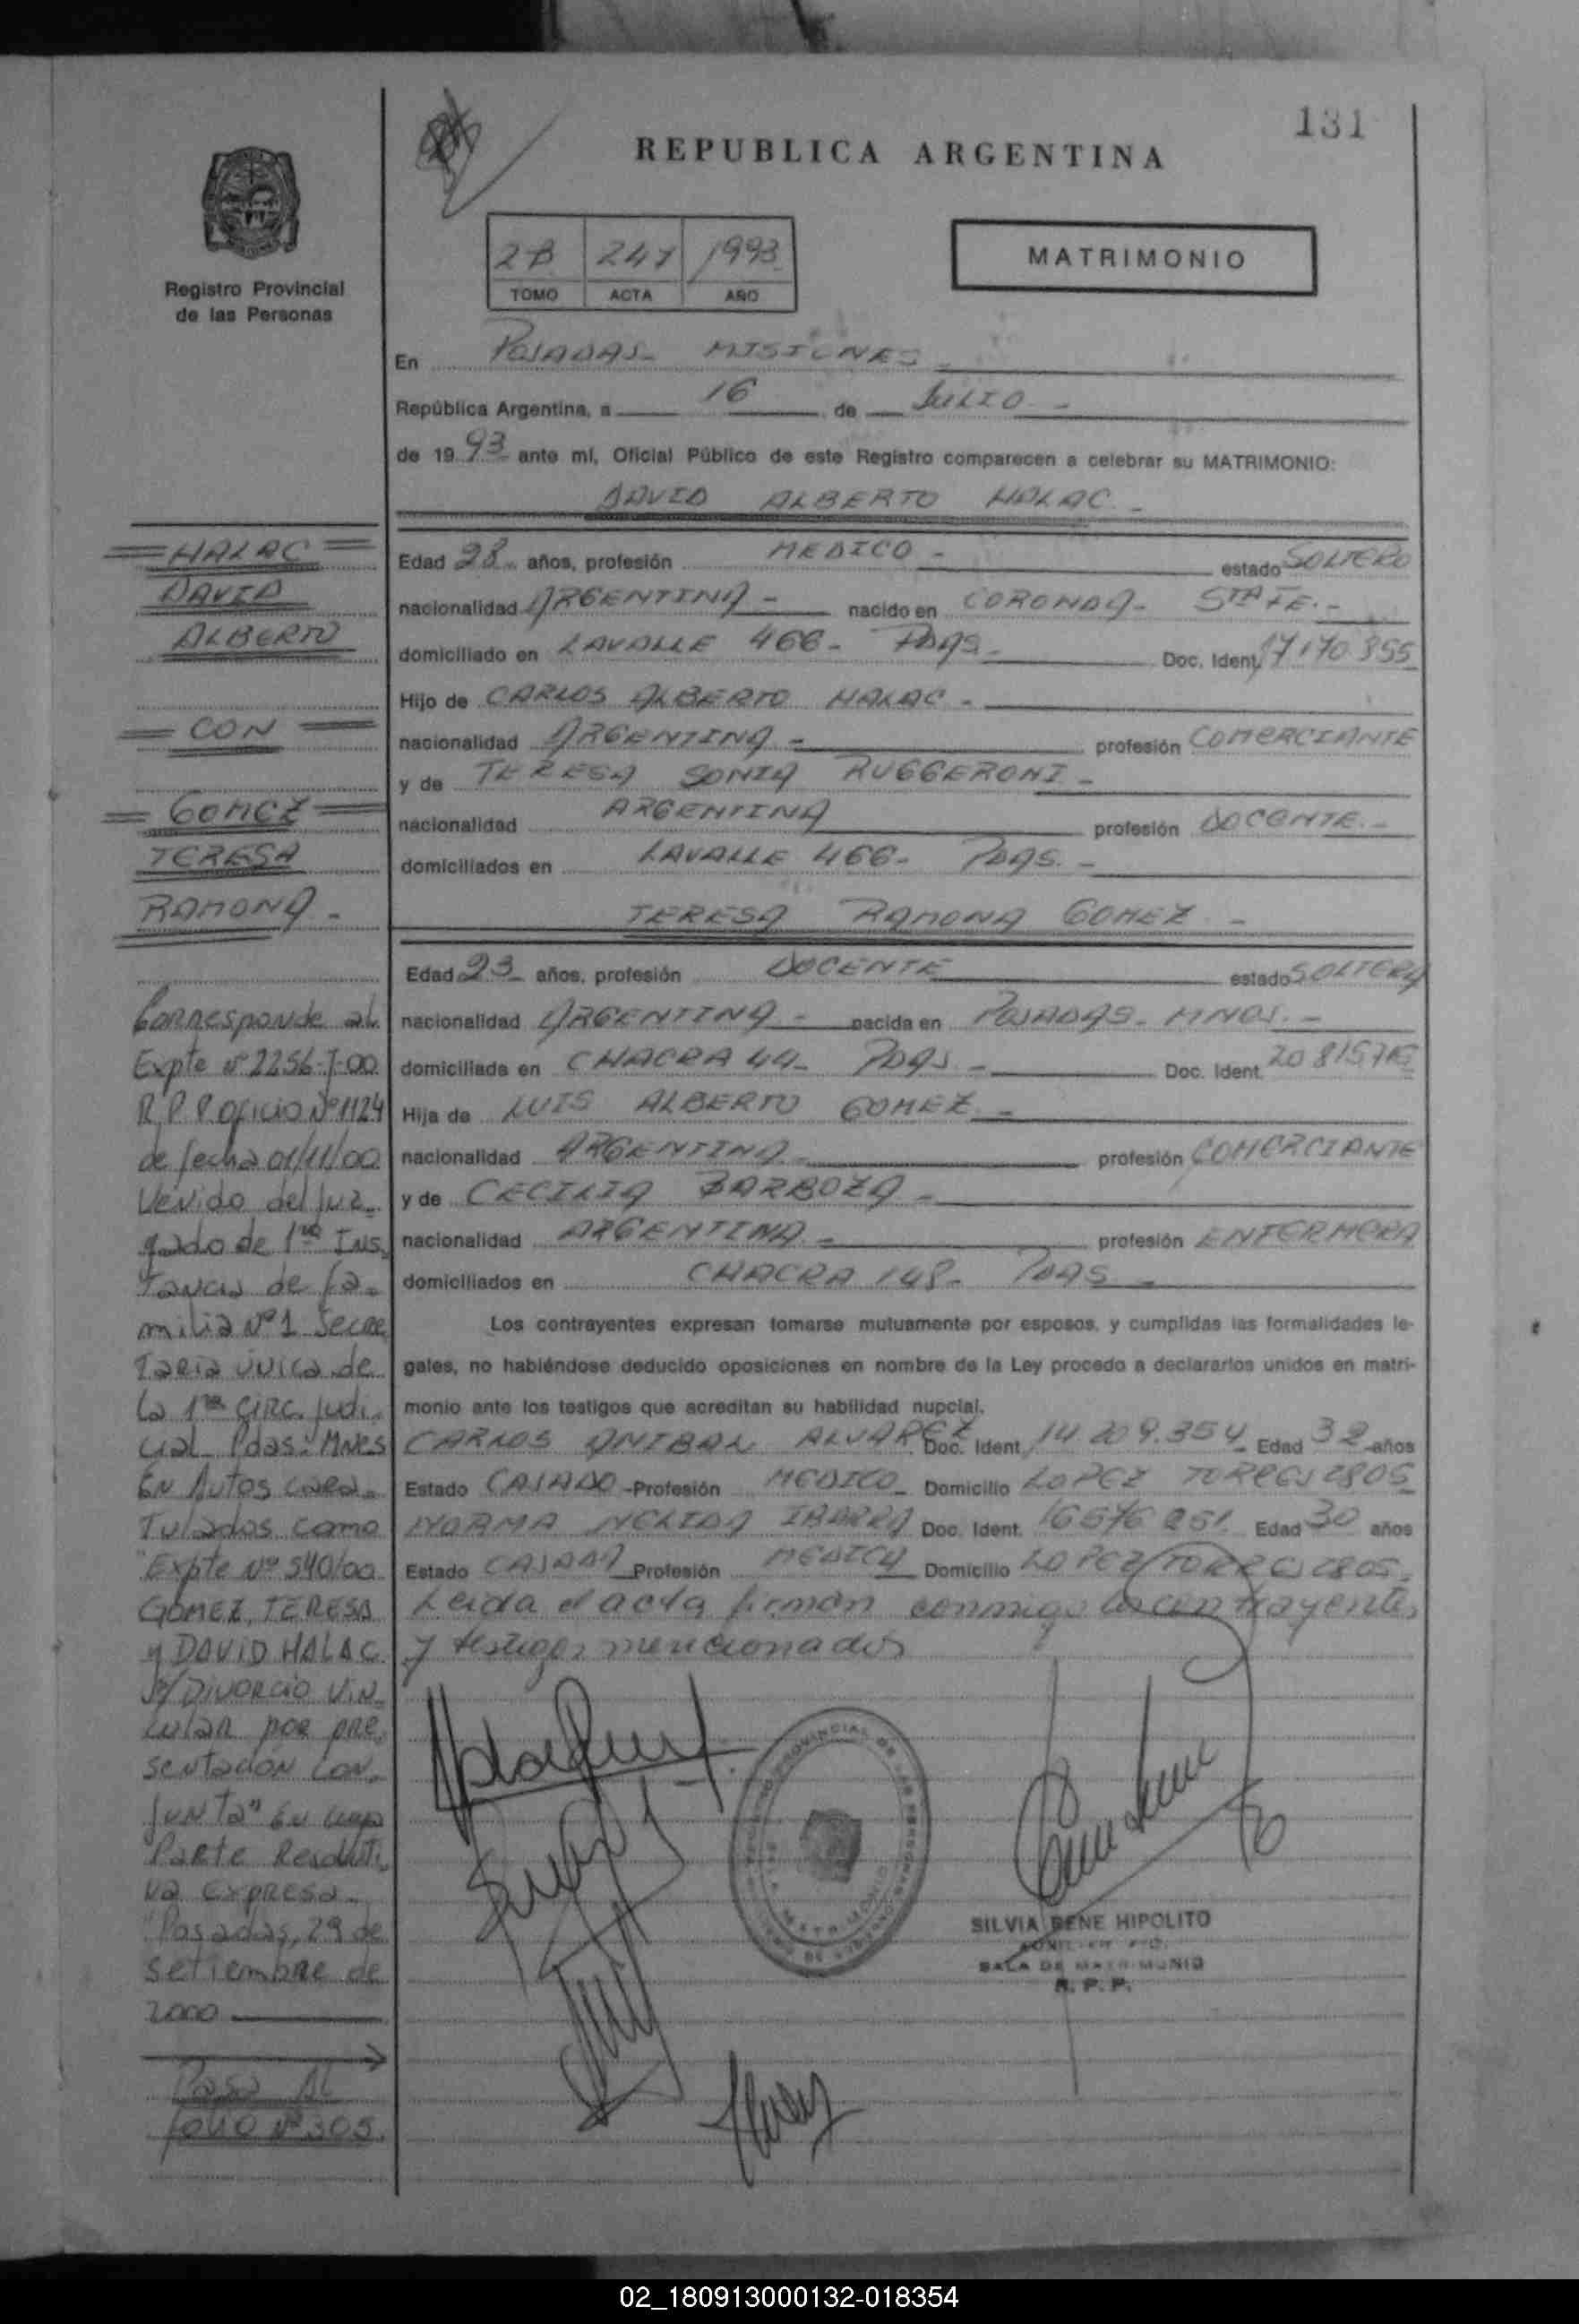 131
REPUBLICA ARGENTINA
2B 247 1993
TOMO ACTA AÑO
MATRIMONIO
Registro Provincial
de las Personas
En POSADAS - MISIONES
República Argentina, a 16 de JULIO -
de 1993 ante mí, Oficial Público de este Registro comparecen a celebrar su MATRIMONIO:
DAVID ALBERTO HALAC. -
Edad 28 años, profesión MEDICO - estado SOLTERO
nacionalidad ARGENTINA - nacido en CORONDA - STA FE. -
domiciliado en LAVALLE 466 - PDAS - Doc. Ident. 17.170.355
Hijo de CARLOS ALBERTO HALAC -
nacionalidad ARGENTINA - profesión COMERCIANTE
y de TERESA SONIA RUGGERONI -
nacionalidad ARGENTINA profesión DOCENTE. -
domiciliados en LAVALLE 466 - PDAS. -
TERESA RAMONA GOMEZ -
Edad 23 años, profesión DOCENTE estado SOLTERA
nacionalidad ARGENTINA - nacida en POSADAS - MNES. -
domiciliada en CHACRA 44 - PDAS. - Doc. Ident.
Hija de LUIS ALBERTO GOMEZ -
nacionalidad ARGENTINA - profesión COMERCIANTE
y de CECILIA BARBOZA -
nacionalidad ARGENTINA - profesión ENFERMERA
domiciliados en CHACRA 148 - PDAS -
Los contrayentes expresan tomarse mutuamente por esposos, y cumplidas las formalidades le-
gales, no habiéndose deducido oposiciones en nombre de la Ley procedo a declararlos unidos en matri-
monio ante los testigos que acreditan su habilidad nupcial.
CARLOS ANIBAL ALVAREZ Doc. Ident. 14.209.354 Edad 32 años
Estado CASADO - Profesión MEDICO - Domicilio LOPEZ TORRES 2805
NORMA NELIDA IBARRA Doc. Ident. 16576251 Edad 30 años
Estado CASADA Profesión MEDICA Domicilio LOPEZ TORRES 2805.
Leida el acta firman conmigo los contrayentes
y testigos mencionados
SILVIA BENE HIPOLITO
SALA DE MATRIMONIO
R. P. P.
HALAC
DAVID
ALBERTO
CON
GOMEZ
TERESA
RAMONA -
Corresponde al
Expte Nº 2256-J-00
R.P.P. oficio Nº 1124
de fecha 01/11/00
Venido del Juz-
gado de 1ra Ins-
tancia de Fa-
milia Nº 1 Secre
taria única de
la 1ra Circ. Judi-
cial Pdas. Mnes
En Autos cara-
tulados como
"Expte Nº 540/00
GOMEZ, TERESA
y DAVID HALAC
S/ Divorcio Vin-
cular por pre-
sentación con-
junta" En cuya
Parte Resoluti-
va expresa -
"Posadas, 29 de
setiembre de
2000
Pasa al
folio Nº 305.
02_180913000132-018354